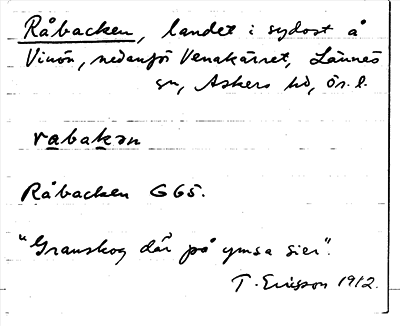 Råbacken, landet i sydost å
Vinön, nedanför Venakärret, Lännäs
sn, Askers hd, Ör. l.
rabakən
Råbacken G65.
"Granskog där på ymsa sier".
T. Ericsson 1912.